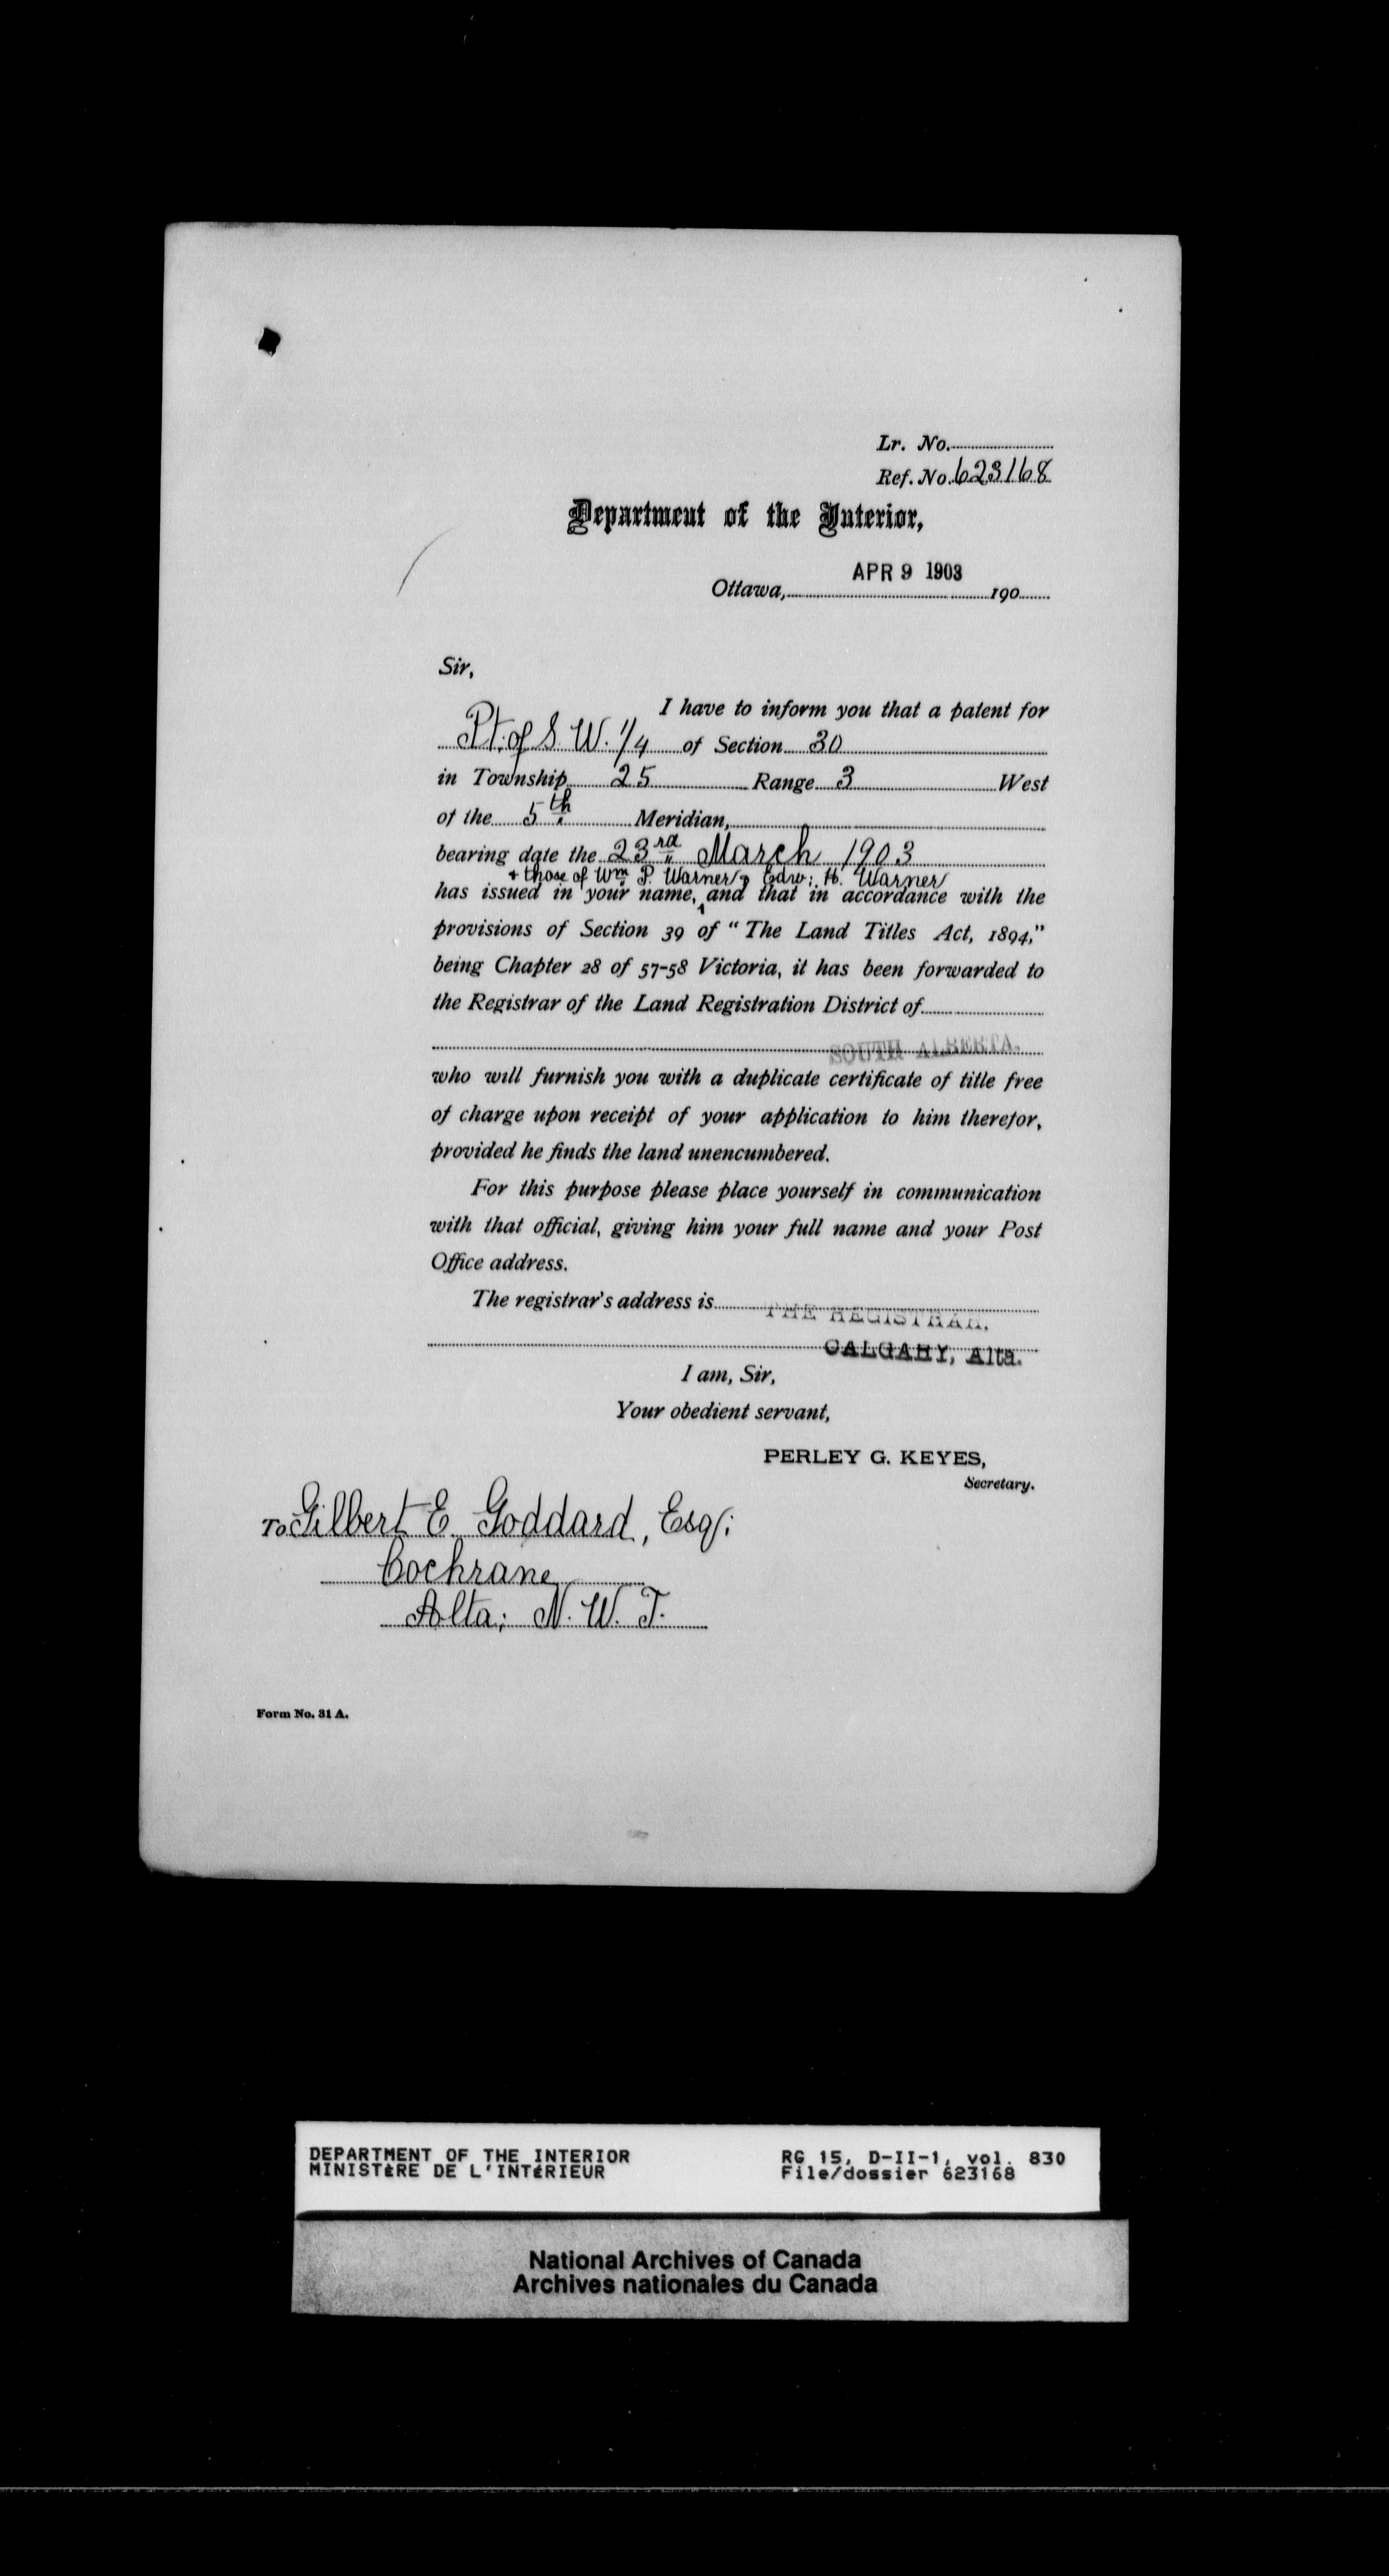 Lr. No.
Ref. No. 623168
Department of the Interior,
APR 9 1903
Ottawa, 190
Sir,
I have to inform you that a patent for
Pt. of S. W. 1/4 of Section 30
in Township 25 Range 3 West
of the 5th Meridian,
bearing date the 23rd March 1903
+ those of Wm P. Warner & Edw: H. Warner
has issued in your name, and that in accordance with the
provisions of Section 39 of "The Land Titles Act, 1894,"
being Chapter 28 of 57-58 Victoria, it has been forwarded to
the Registrar of the Land Registration District of
SOUTH ALBERTA.
who will furnish you with a duplicate certificate of title free
of charge upon receipt of your application to him therefor,
provided he finds the land unencumbered.
For this purpose please place yourself in communication
with that official, giving him your full name and your Post
Office address.
The registrar's address is
THE REGISTRAR.
CALGARY, Alta.
I am, Sir,
Your obedient servant,
PERLEY G. KEYES,
Secretary.
To Gilbert E. Goddard, Esq;
Cochrane
Alta; N. W. T.
Form No. 31 A.
DEPARTMENT OF THE INTERIOR RG 15, D-II-1, vol. 830
MINISTÈRE DE L'INTÉRIEUR File/dossier 623168
National Archives of Canada
Archives nationales du Canada